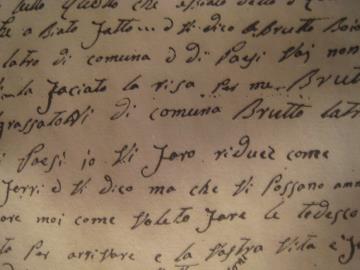 tutto questo che
che a Biato fatto... d Vi dico o Brutto Boia
latro di comuna d di Paesi Voi non
la faciato la risa per me Brut
grassatori di comuna Brutto latr
i Paesi io Vi faro riduez come
ferri d Vi dico ma che Vi Possano am
ore moi come Voleto fare le tedesco
to Per arrivare e la Vostra Vita e